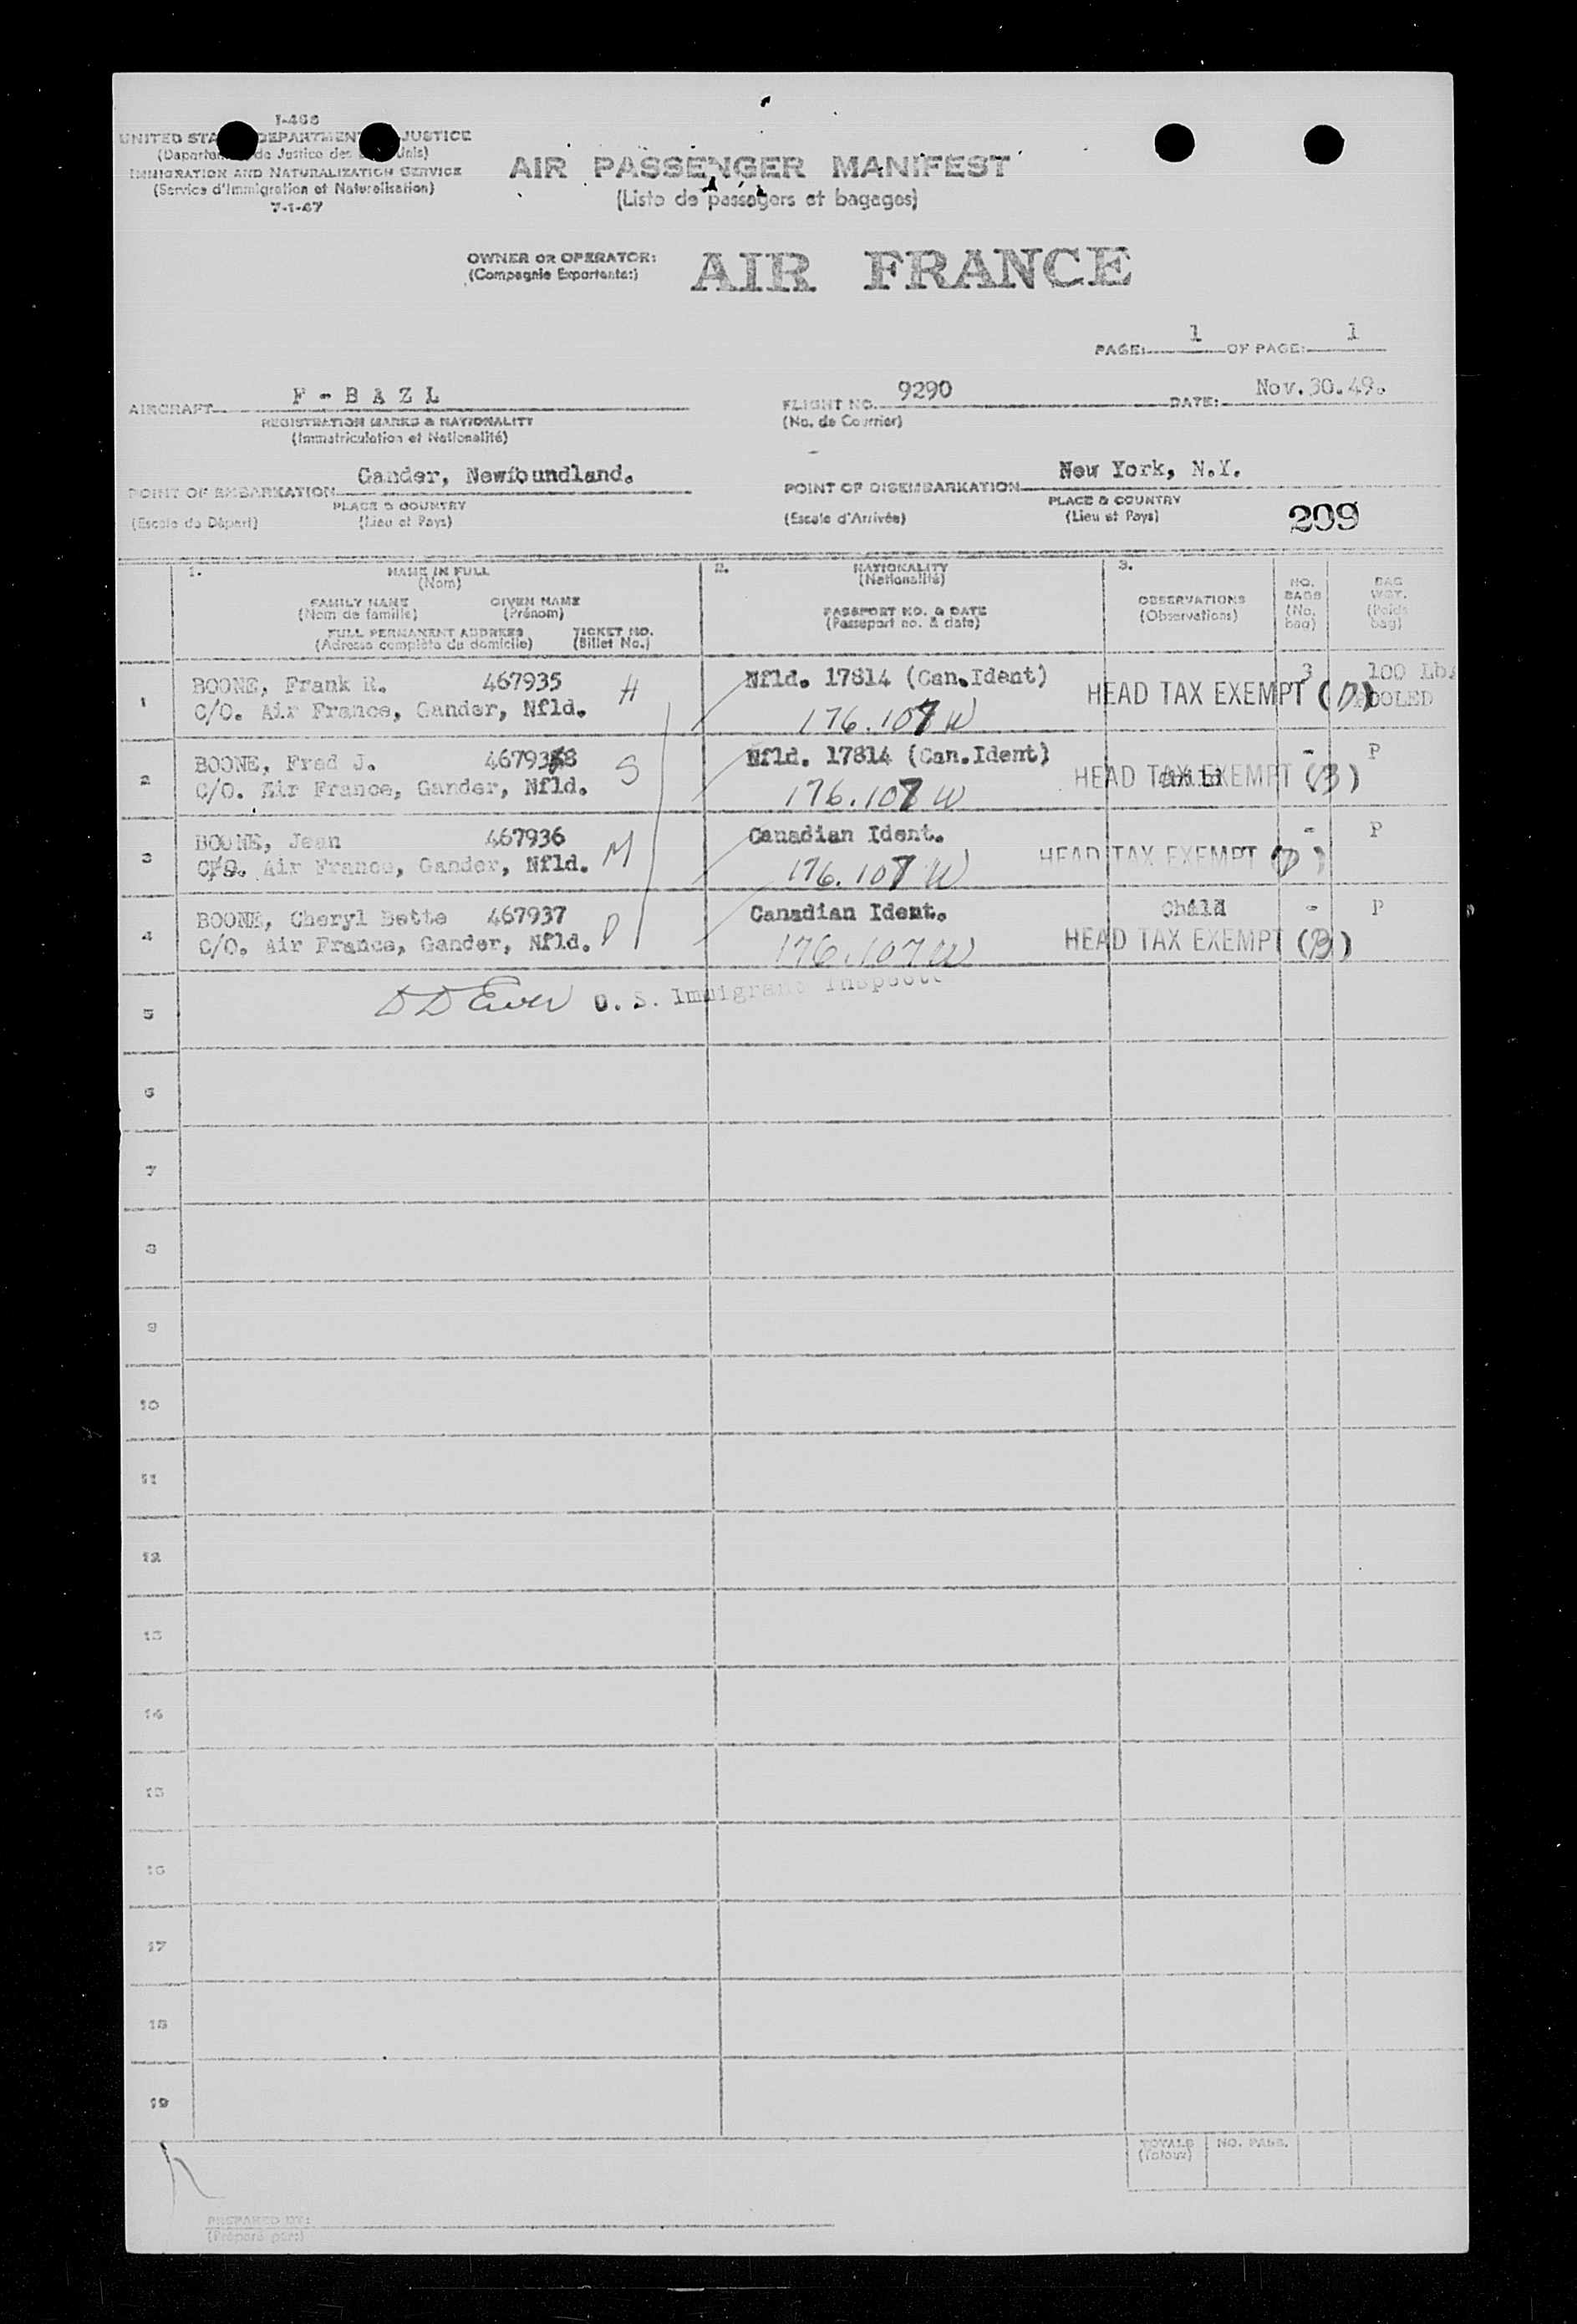 I-466
UNITED STA DEPARTMENT JUSTICE
(Departe de Justice des Unis)
IMMIGRATION AND NATURALIZATION SERVICE
(Service d'Immigration et Naturalisation)
7-1-47
AIR PASSENGER MANIFEST
(Liste de passagers et bagages)
OWNER OR OPERATOR: AIR FRANCE
(Compagnie Exportante:)
PAGE: 1 OF PAGE: 1
AIRCRAFT F - B A Z L FLIGHT NO. 9290 DATE: Nov.30.49.
REGISTRATION MARKS & NATIONALITY (No. de Courrier)
(Immatriculation et Nationalité)
POINT OF EMBARKATION Gander, Newfoundland. POINT OF DISEMBARKATION New York, N.Y.
PLACE & COUNTRY PLACE & COUNTRY
(Escale du Départ) (Lieu et Pays) (Escale d'Arrivée) (Lieu et Pays) 209
1. NAME IN FULL 2. NATIONALITY 3.
(Nom) (Nationalité)
FAMILY NAME GIVEN NAME PASSPORT NO. & DATE OBSERVATIONS NO. BAGS BAG WGT.
(Nom de famille) (Prénom) (Passeport no. & date) (Observations) (No. bag) (Poids bag)
FULL PERMANENT ADDRESS TICKET NO.
(Adresse complète du domicile) (Billet No.)
1 BOONE, Frank R. 467935 H Nfld. 17814 (Can.Ident) HEAD TAX EXEMPT (D) 3 100 Lbs
C/O. Air France, Gander, Nfld. 176.107 W POOLED
2 BOONE, Fred J. 467938 S Nfld. 17814 (Can.Ident) - P
C/O. Air France, Gander, Nfld. 176.107 W Child HEAD TAX EXEMPT (B)
3 BOONE, Jean 467936 M Canadian Ident. - P
C/O. Air France, Gander, Nfld. 176.107 W HEAD TAX EXEMPT (D)
4 BOONE, Cheryl Bette 467937 D Canadian Ident. Child - P
C/O. Air France, Gander, Nfld. 176.107 W HEAD TAX EXEMPT (B)
5 U. S. Immigrant Inspector
6
7
8
9
10
11
12
13
14
15
16
17
18
19
TOTALS NO. PASS.
(Totaux)
PREPARED BY:
(Préparé par:)